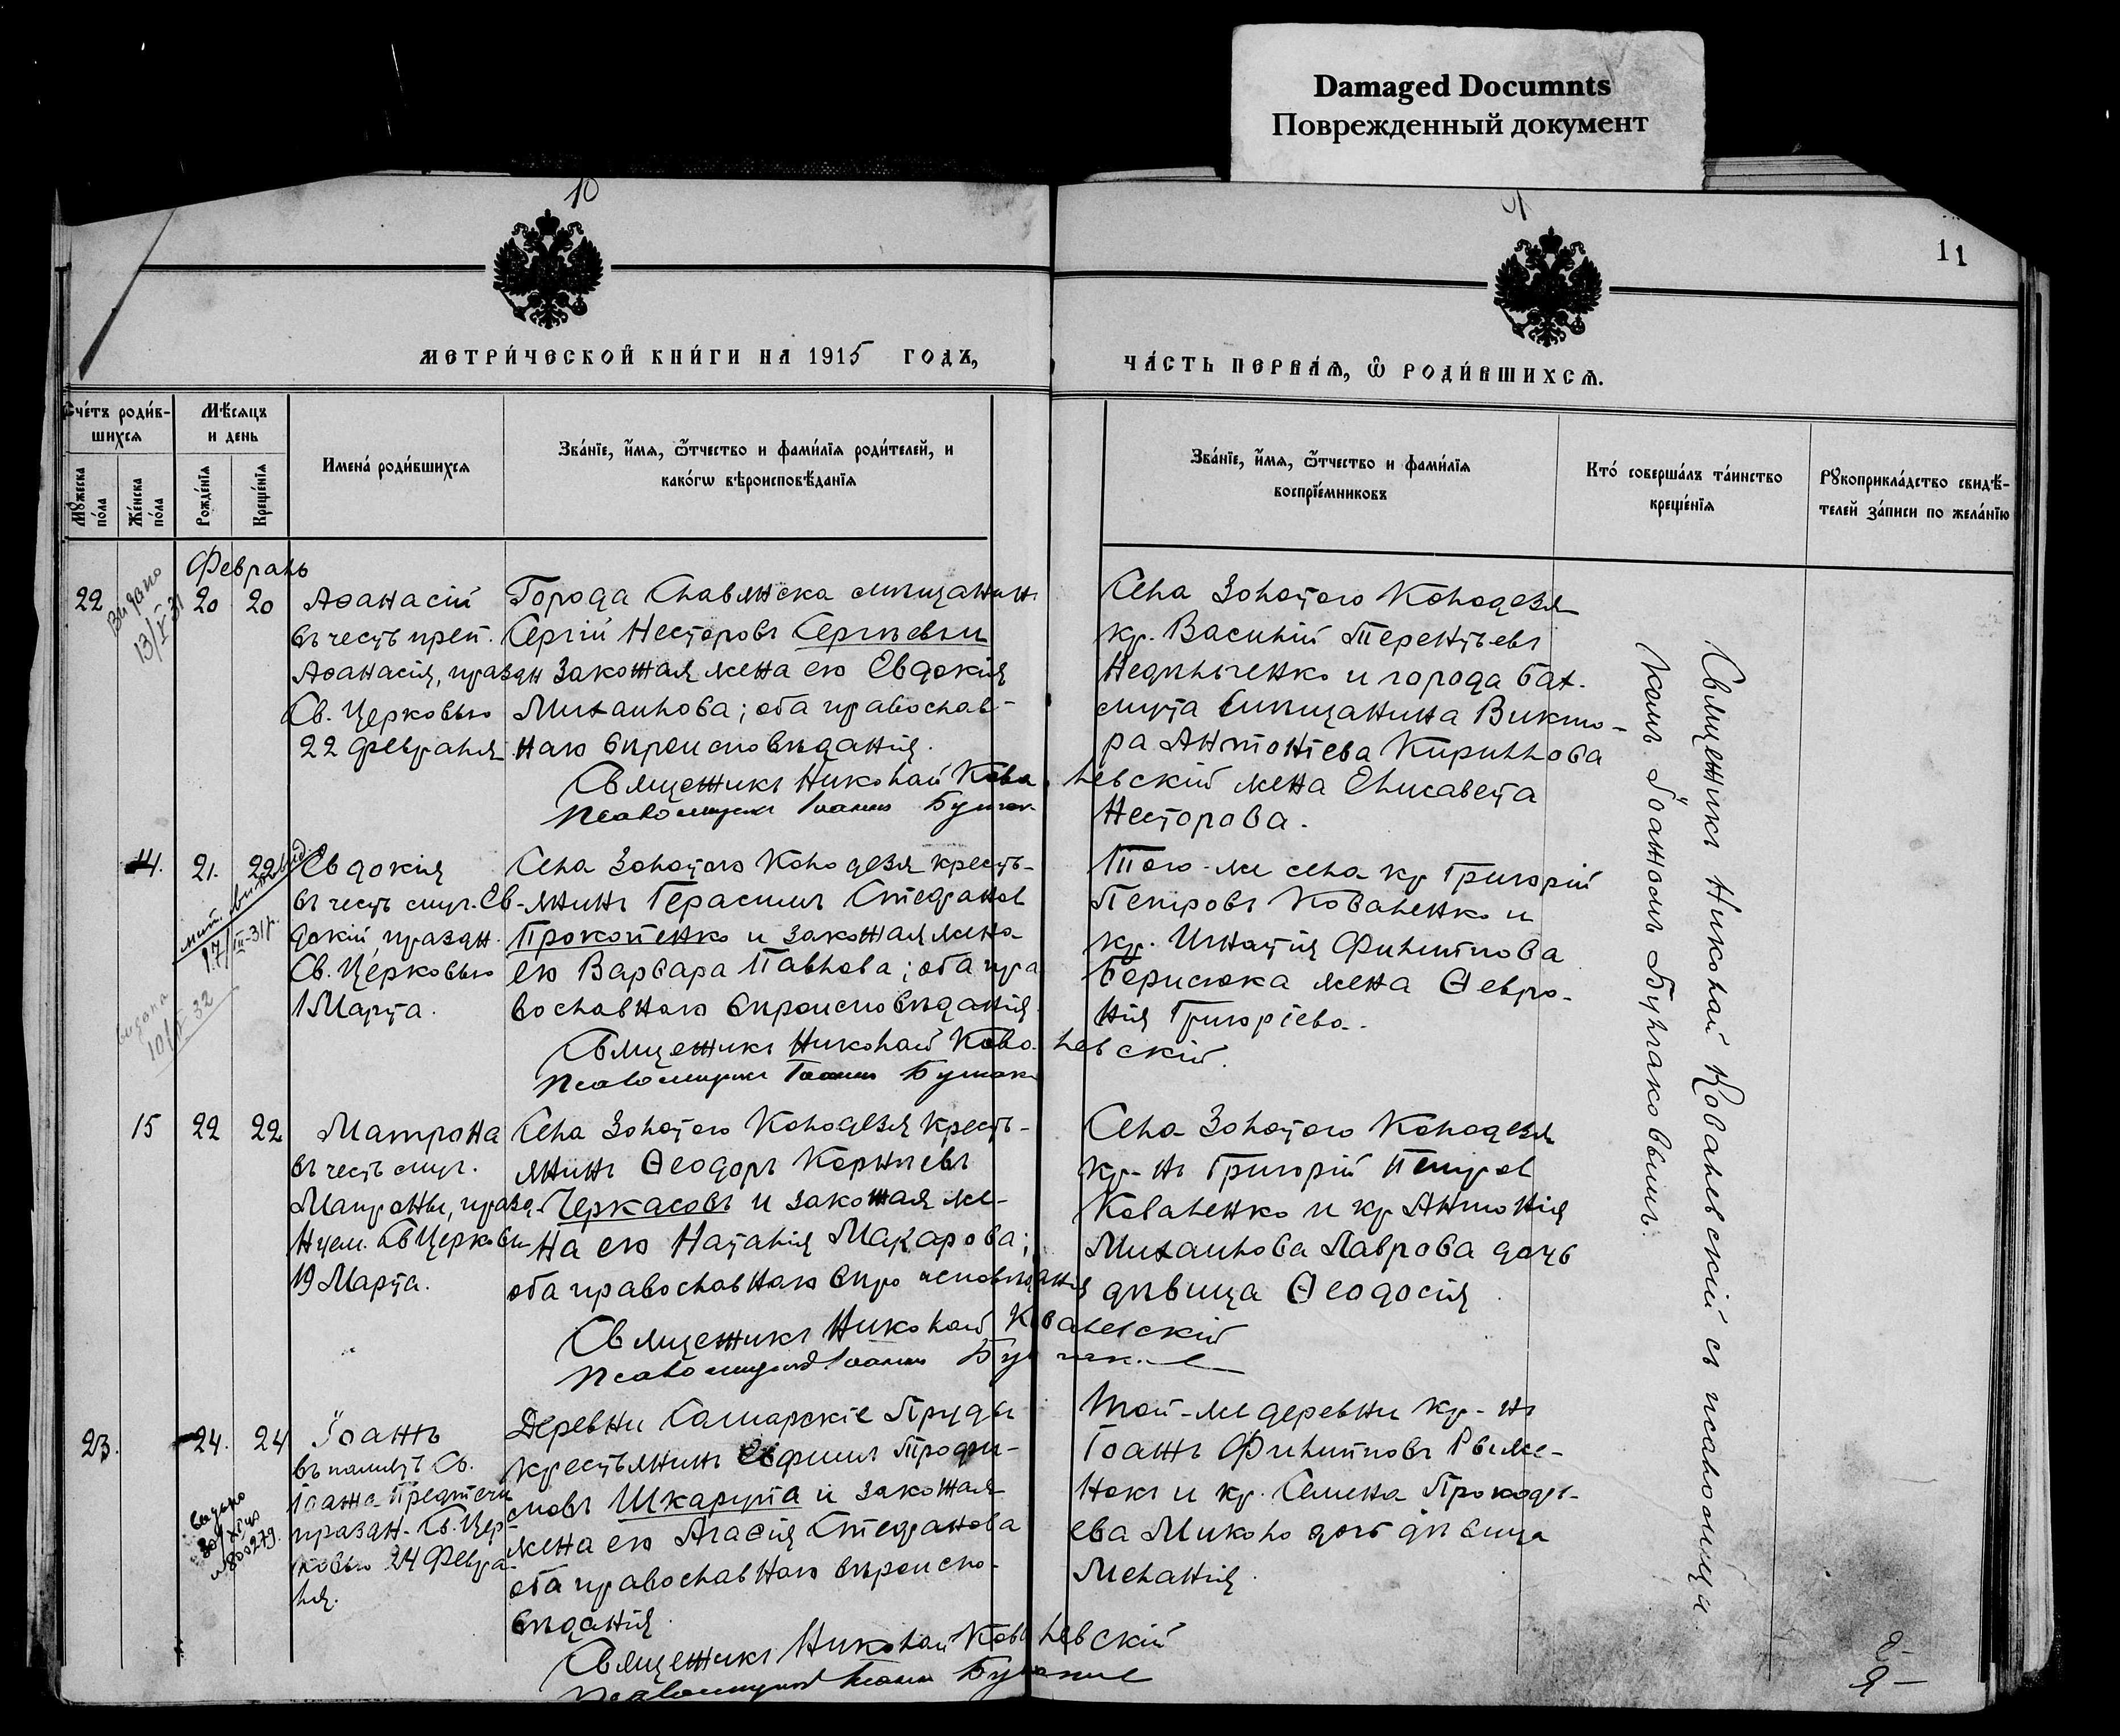 Damaged Documnts
Поврежденный документ
10
11
МЕТРИ́ЧЕСКОЙ КНИ́ГИ НА 1915 ГОДЪ,
ЧА́СТЬ ПЕРВАЯ, Ѡ РОДИ́ВШИХСЯ.
Счéтъ роди́в-
шихся
Мѣ́сяцъ
и день
Мꙋжеска
пóла
Жéнска
пóла
Рождéнїя
Крещéнїя
Именá роди́вшихся
Звáнїе, и́мя, ѻ҆́тчество и фами́лїя роди́телей, и
какóгѡ вѣроисповѣ́данїя
Звáнїе, и́мя, ѻ҆́тчество и фами́лїя
воспрїéмниковъ
Ктó совершáлъ тáинство
крещéнїя
Рꙋкоприклáдство свидѣ́-
телей зáписи по желáнїю
Февраль
22
Выдано
13/V 31
20 20
Аѳанасій
въ честь преп.
Аѳанасія, праздн
Св. Церковью
22 февраля
Города Славянска мѣщанинъ
Сергій Несторовъ Сергѣевъ и
законная жена его Евдокія
Михаилова; оба православ-
наго вѣроисповѣданія.
Священникъ Николай Ковалевскій
Псаломщикъ Іоаннъ
Села Золотого Колодезя
кр. Василій Терентьевъ
Недѣльченко и города Бах-
мута мѣщанина Викто-
ра Антоніева Кириллова
жена Елисавета
Несторова.
14. 21. 22
17/III-31 г.
выдана
10/V 32
Евдокія
въ честь муч. Ев-
докіи, праздн.
Св. Церковью
1 Марта.
Села Золотого Колодезя кресть-
янинъ Герасимъ Стефановъ
Прокопенко и законная жена
его Варвара Павлова; оба пра
вославнаго вѣроисповѣданія.
Священникъ Николай Ковалевскій.
Псаломщикъ Іоаннъ
Того-же села кр Григорій
Петровъ Коваленко и
кр. Игнатія Филиппова
Борисюка жена Ѳевро-
нія Григоріева.
15 22 22
Матрона
въ честь муч.
Матроны, празд-
нуем. Св Церковью
19 Марта.
Села Золотого Колодезя кресть-
янинъ Ѳеодоръ Корнѣевъ
Черкасовъ и законная же-
на его Наталія Макарова;
оба православнаго вѣроисповѣданія
Священникъ Николай Ковалевскій
Псаломщикъ Іоаннъ
Села Золотого Колодезя
кр-нъ Григорій Петровъ
Коваленко и кр Антонія
Михаилова Лаврова дочь
дѣвица Ѳеодосія
23. 24. 24
выдано
№800279.
Іоаннъ
въ память Св.
Іоанна Предтечи
праздн. Св. Цер-
ковью 24 Февра-
ля.
Деревни Самарскіе Пруды
крестьянинъ Евфимъ Трофи-
мовъ Шкарупа и законная
жена его Агафія Стефанова
оба православнаго вѣроиспо-
вѣданія.
Священникъ Николай Ковалевскій
Псаломщикъ Іоаннъ
Той-же деревни кр-нъ
Іоаннъ Филипповъ Рыже-
нокъ и кр. Семена Прокофі-
ева Миколо дочь дѣвица
Меланія.
Священникъ Николай Ковалевскій съ псаломщи
комъ Іоанномъ Булгаковымъ.